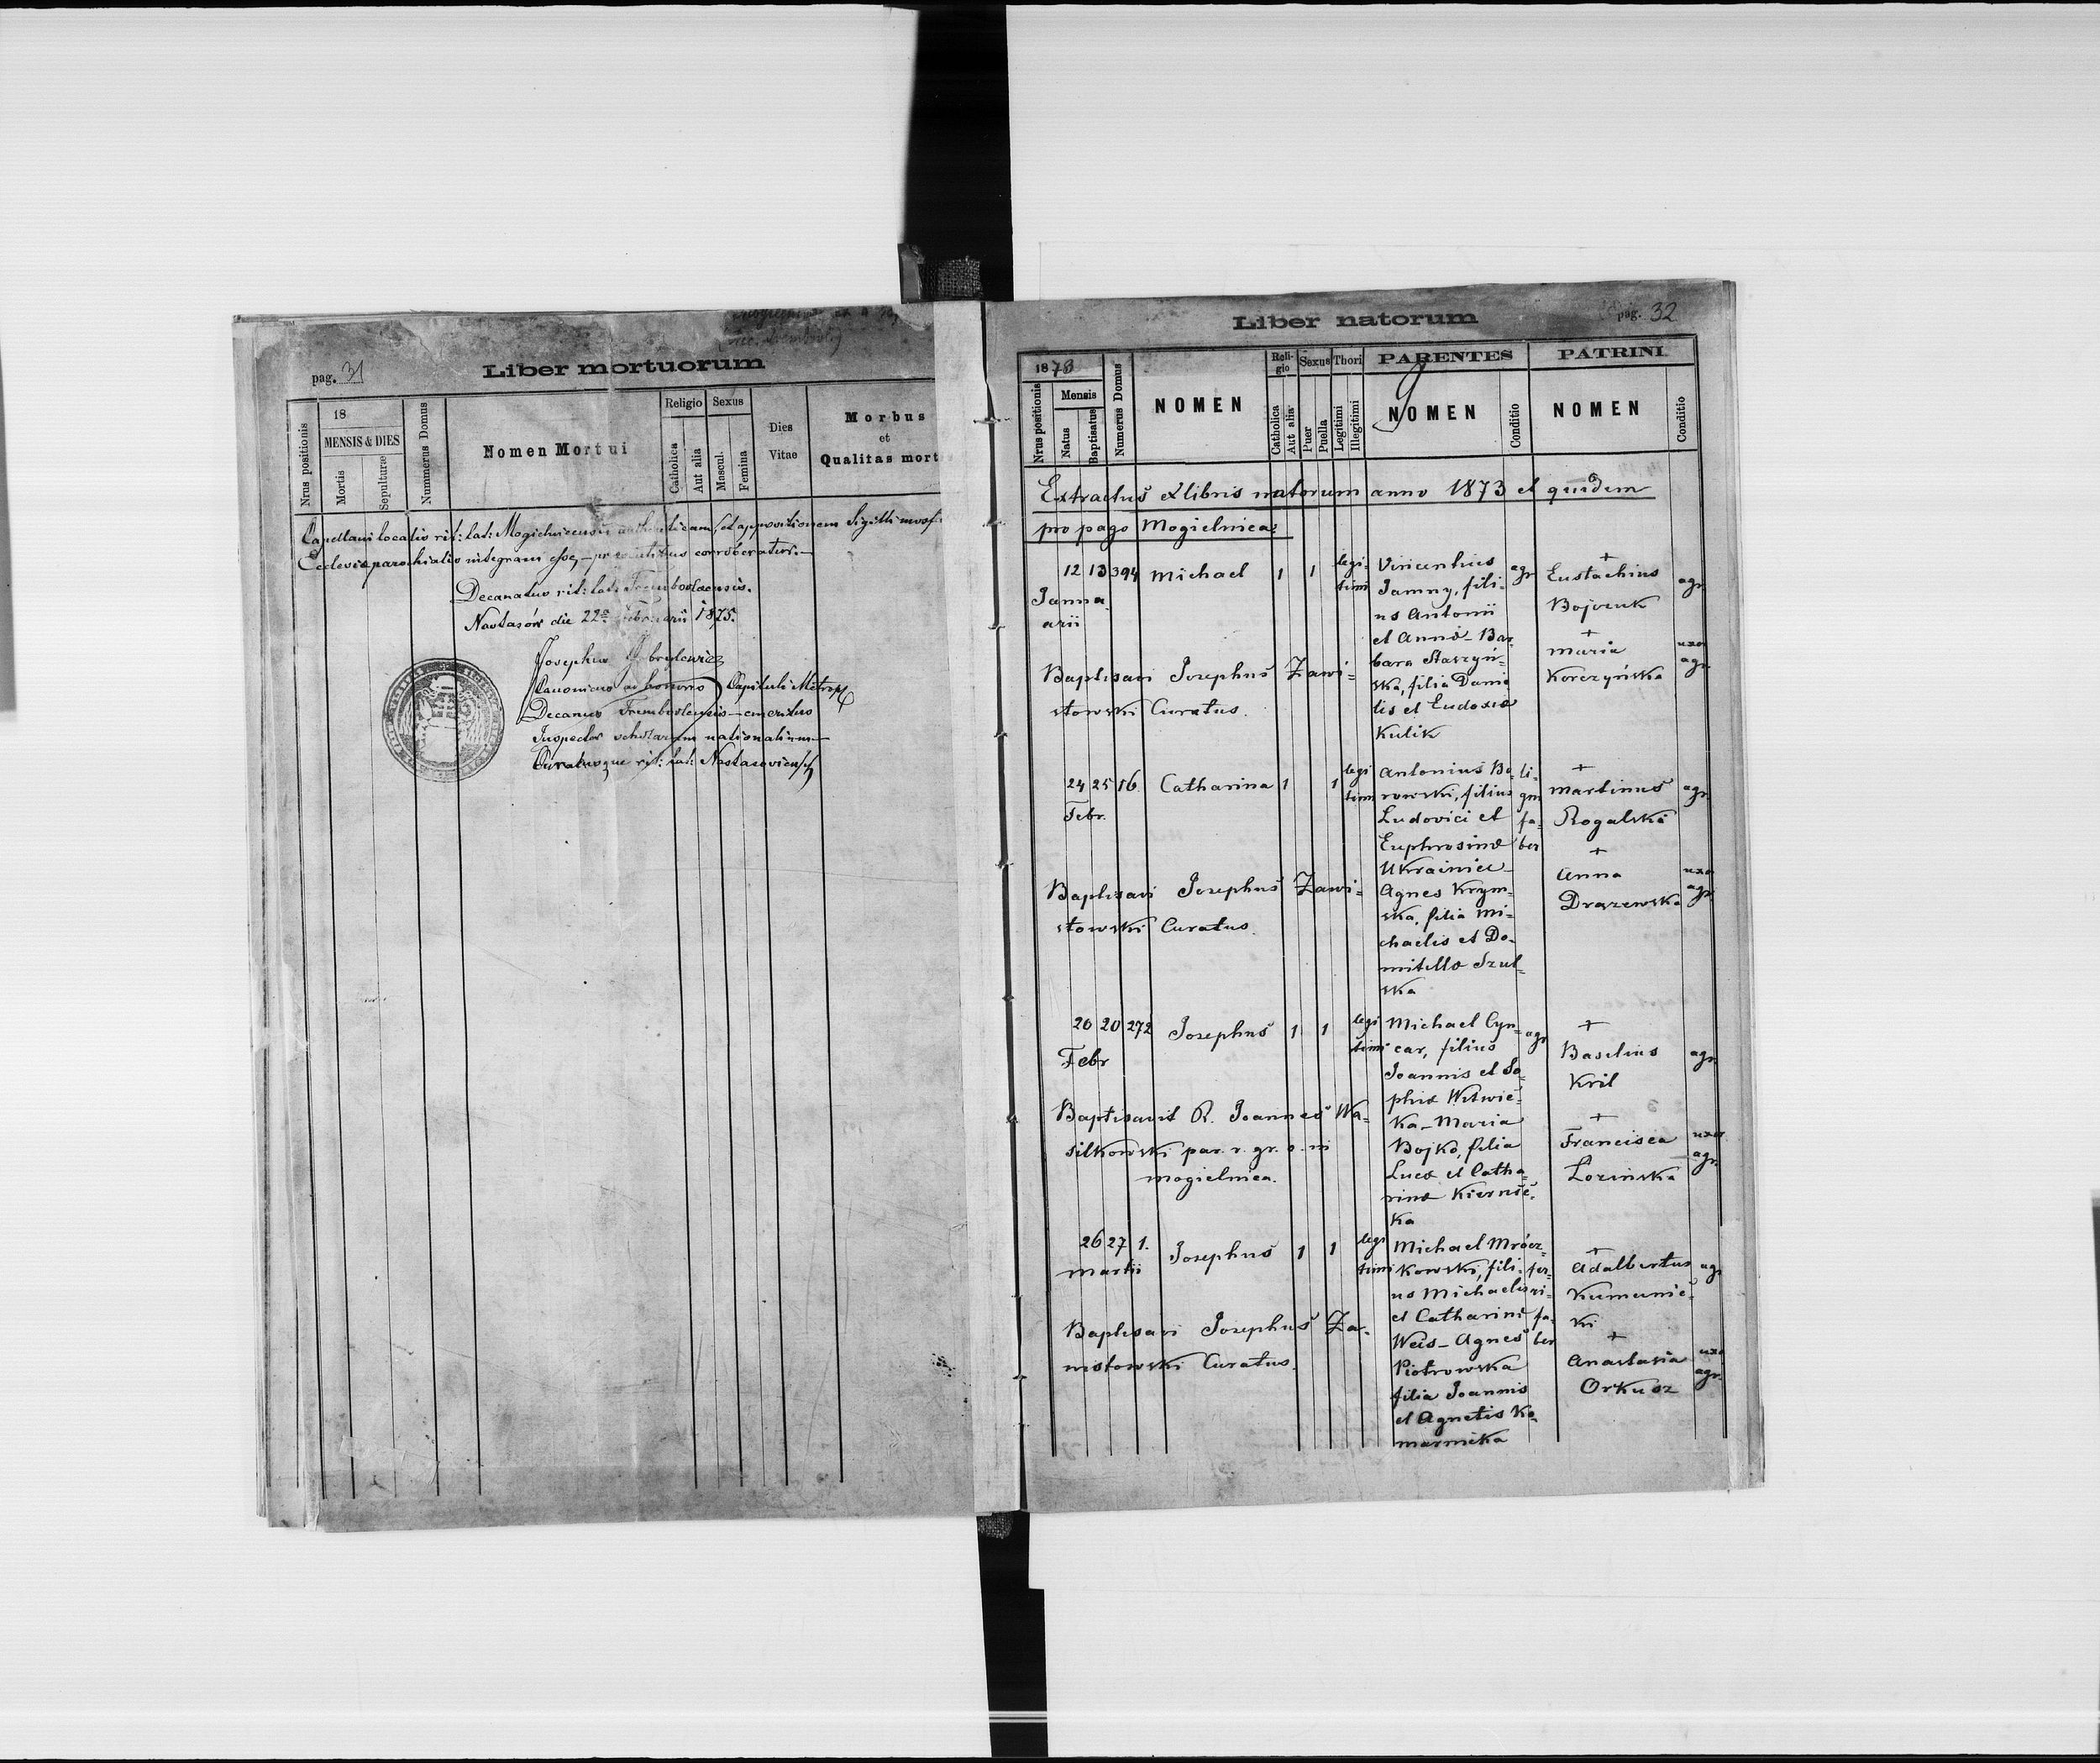 pag. 31
Liber mortuorum
Nrus positionis
18
MENSIS & DIES
Mortis
Sepulturæ
Nummerus Domus
Nomen Mortui
Religio
Catholica
Aut alia
Sexus
Mascul.
Femina
Dies
Vitae
Morbus
et
Qualitas mort
Capellani localis rit: lat: Mogielnicensis authenticam, et appositionem Sigilli
Ecclesiæ parochialis integram esse, praesentibus corroboratur.
Decanatus rit: lat: Trembovlaensis.
Nastasów die 22a Februarii 1875.
Josephus
Canonicus ad honores Capituli Metropl
Decanus Trembovlensis emeritus
Inspector scholarum nationalium
Curatusque rit: lat: Nastasoviensis
pag. 32
Liber natorum
1873
Nrus positionis
Mensis
Natus
Baptisatus
Numerus Domus
NOMEN
Reli-
gio
Catholica
Aut alia
Sexus
Puer
Puella
Thori
Legitimi
Illegitimi
PARENTES
NOMEN
Conditio
PATRINI
NOMEN
Conditio
Extractus ex libris natorum anno 1873 et quidem
pro pago Mogielnica:
12 13 394 Michael 1 1 legi-
timi
Janu
arii
Vincentius
Jamny, fili-
us Antonii
et Annæ - Bar-
bara Staszyń-
ska, filia Danie
lis et Eudoxiæ
Kulik
agr
+
Eustachius
Bojczuk
agr.
+
Maria
Korczyńska
uxor
agr.
Baptisavi Josephus Zawi-
stowski Curatus.
24 25 16 Catharina 1 1 legi
timi
Febr.
Antonius Bo-
rowski, filius
Ludovici et
Euphrosinæ
Ukrainiec
Agnes Krym-
ska, filia Mi-
chaelis et Do-
mitillæ Szul-
ska
li-
gni
fa-
ber
+
Martinus
Rogalski
agr.
+
Anna
Draszewska
uxor
agr.
Baptisavi Josephus Zawi-
stowski Curatus.
20 20 272 Josephus 1 1 legi
timi
Febr
Michael Cyn-
car, filius
Joannis et So-
phiæ Witwic-
ka - Maria
Bojko, filia
Lucæ et Catha-
rinæ Kiernic-
ka
agr
+
Basilius
Kril
agr.
+
Francisca
Łozinska
uxor
agr.
Baptisavit R. Joannes Wa-
silkowski par. r. gr. c. in
Mogielnica.
26 27 1. Josephus 1 1 legi
timi
Martii
Michael Mrócz-
kowski, fili-
us Michaelis
et Catharinæ
Weis - Agnes
Piotrowska
filia Joannis
et Agnetis Ko-
marnicka
fer-
ri-
fa-
ber
+
Adalbertus
Kumunic-
ki
agr
+
Anastasia
Orkusz
uxor
agr.
Baptisavi Josephus Za-
wistowski Curatus.